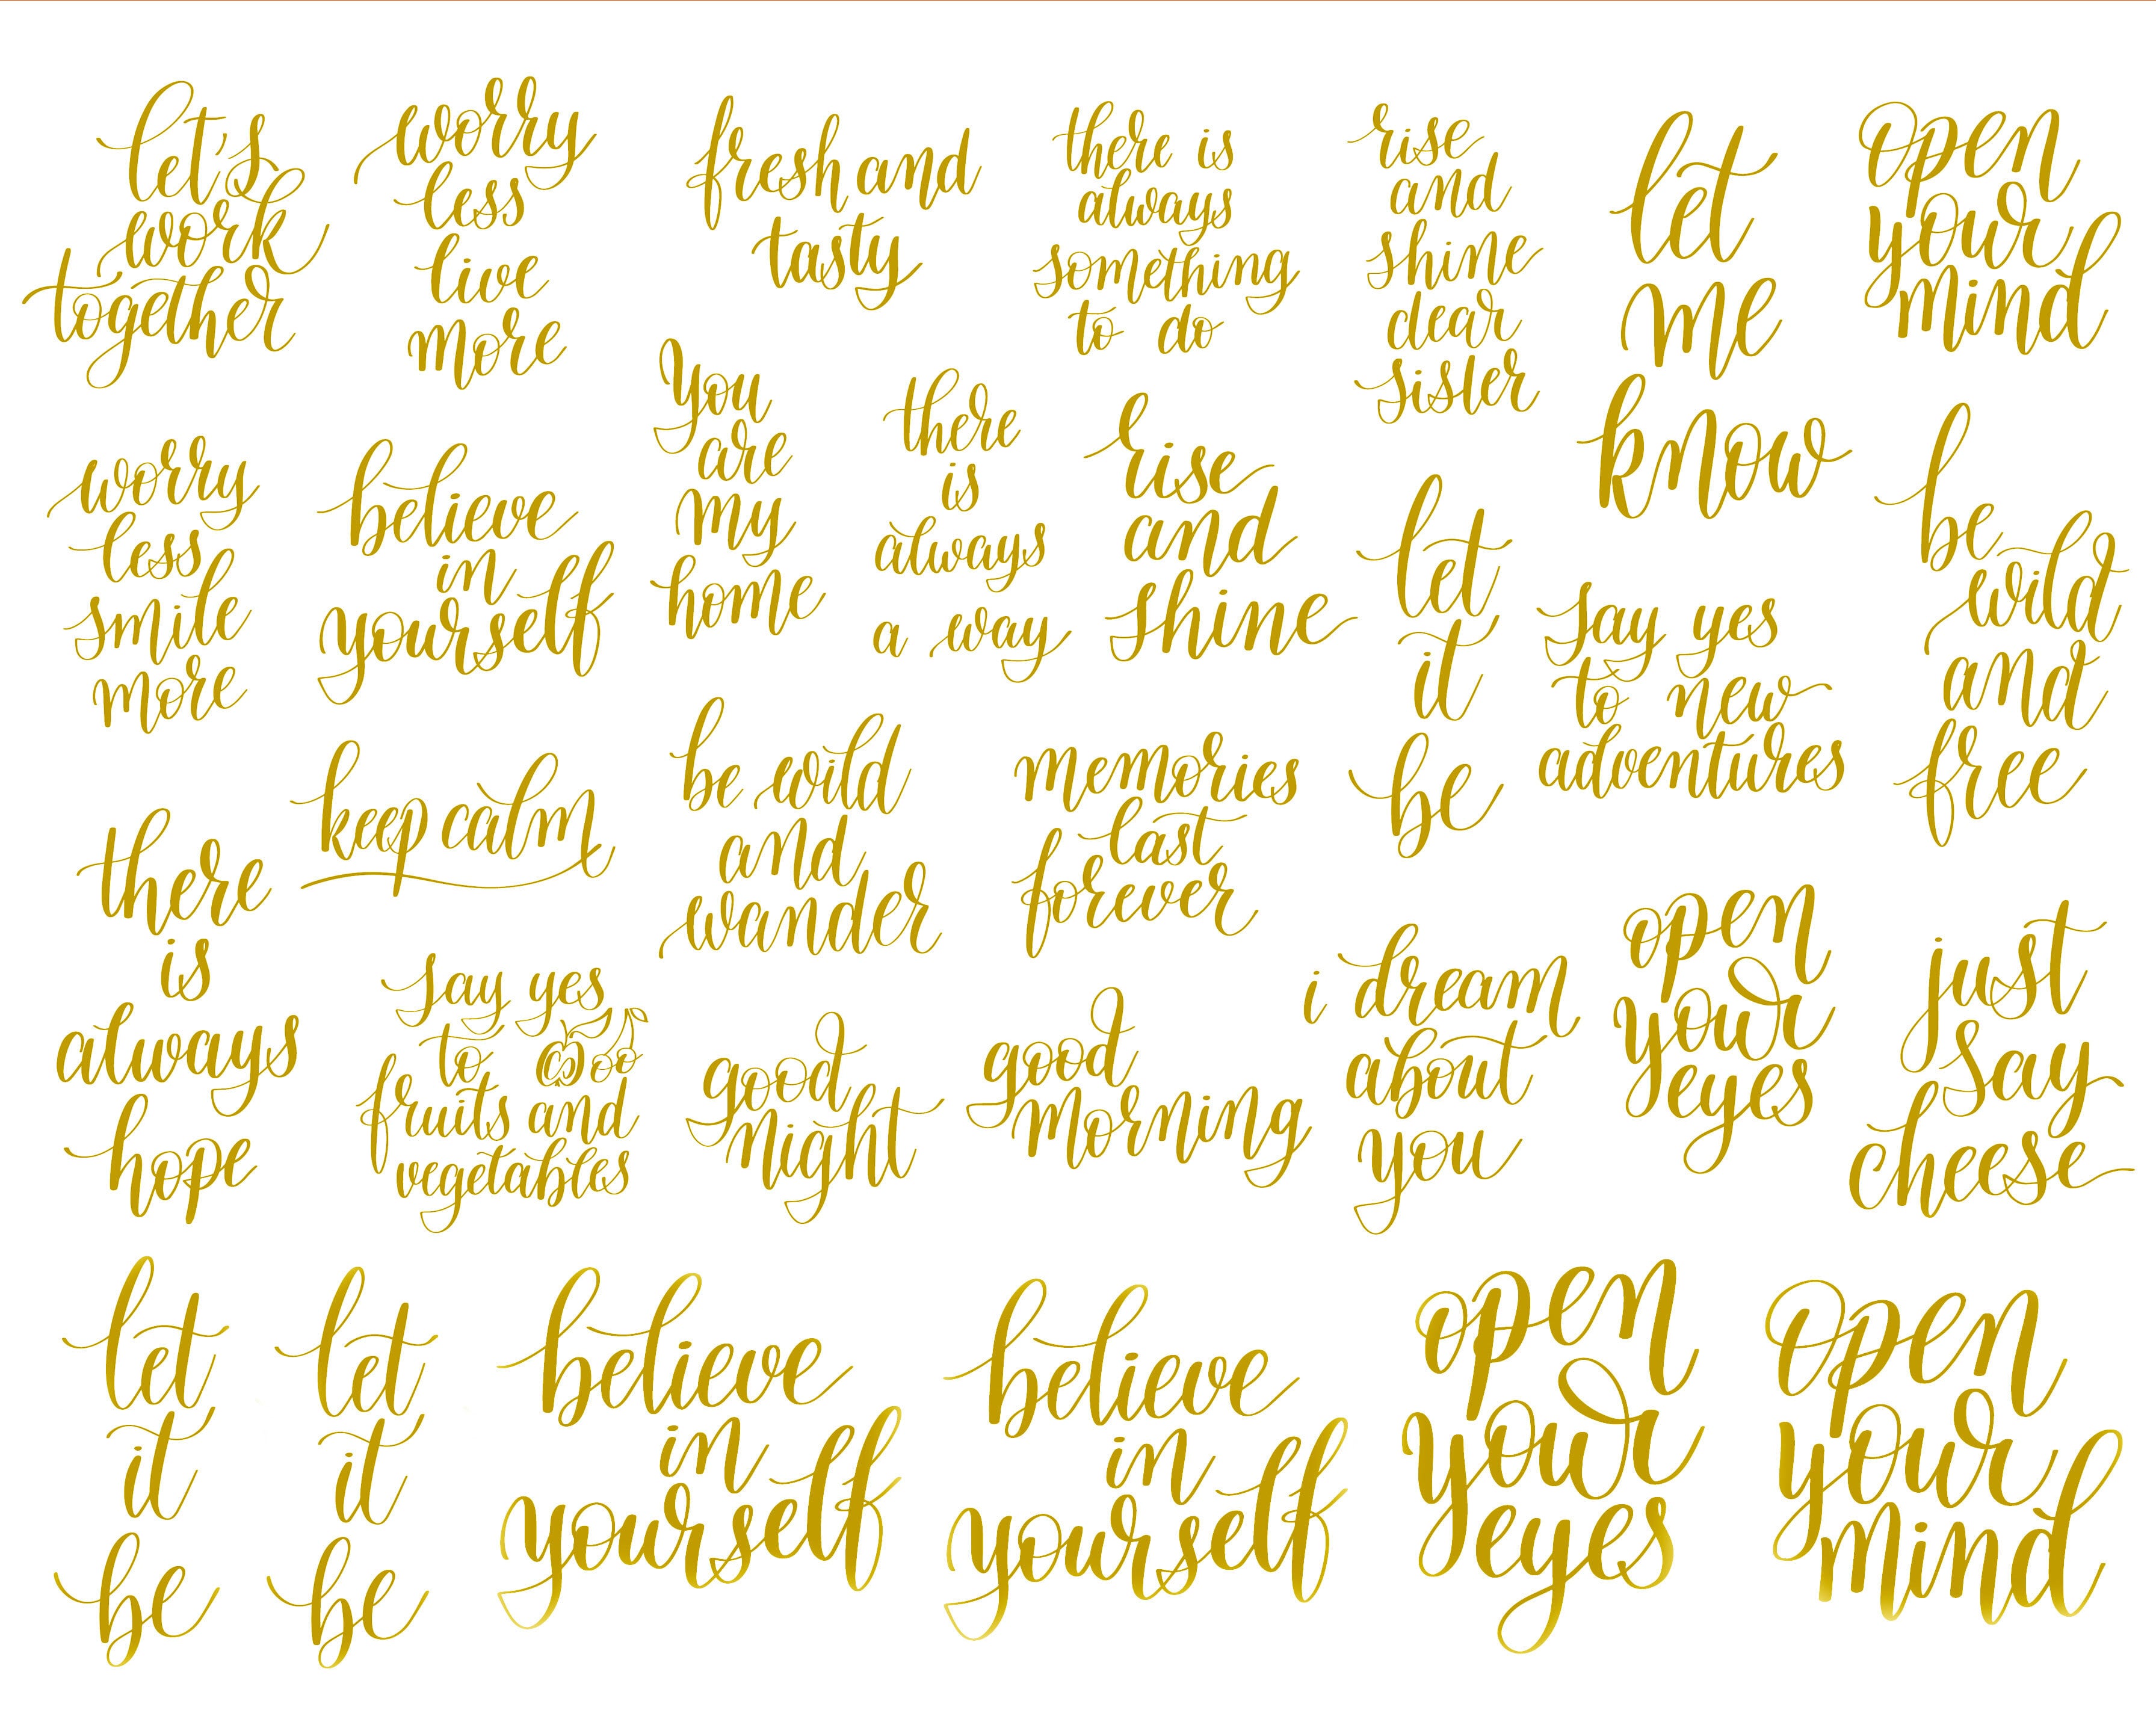 let's
work
together
worry
less
live
more
fresh and
tasty
there is
always
something
to do
rise
and
shine
dear
sister
let
me
know
open
your
mind
worry
less
smile
more
believe
in
yourself
you
are
my
home
there
is
always
a way
rise
and
shine
let
it
be
say yes
to new
adventures
be
wild
and
free
there
is
always
hope
keep calm
be wild
and
wander
memories
last
forever
say yes
to
fruits and
vegetables
good
night
good
morning
i dream
about
you
open
your
eyes
just
say
cheese
let
it
be
let
it
be
believe
in
yourself
believe
in
yourself
open
your
eyes
open
your
mind